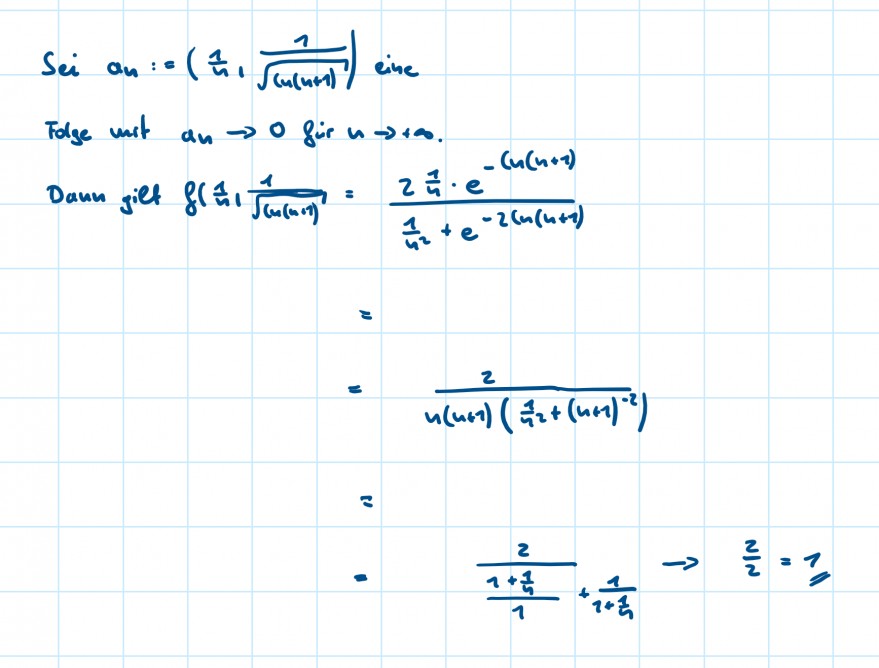 Sei an := ( 1/n , 1/√(ln(n+1)) ) eine
Folge mit an → 0 für n → +∞.
Dann gilt f( 1/n , 1/√(ln(n+1)) = (2 1/n · e^(-ln(n+1))) / (1/n² + e^(-2ln(n+1)))
=
= 2 / (n(n+1) ( 1/n² + (n+1)^-2 ))
=
= 2 / ((1 + 1/n)/1 + 1/(1 + 1/n)) → 2/2 = 1